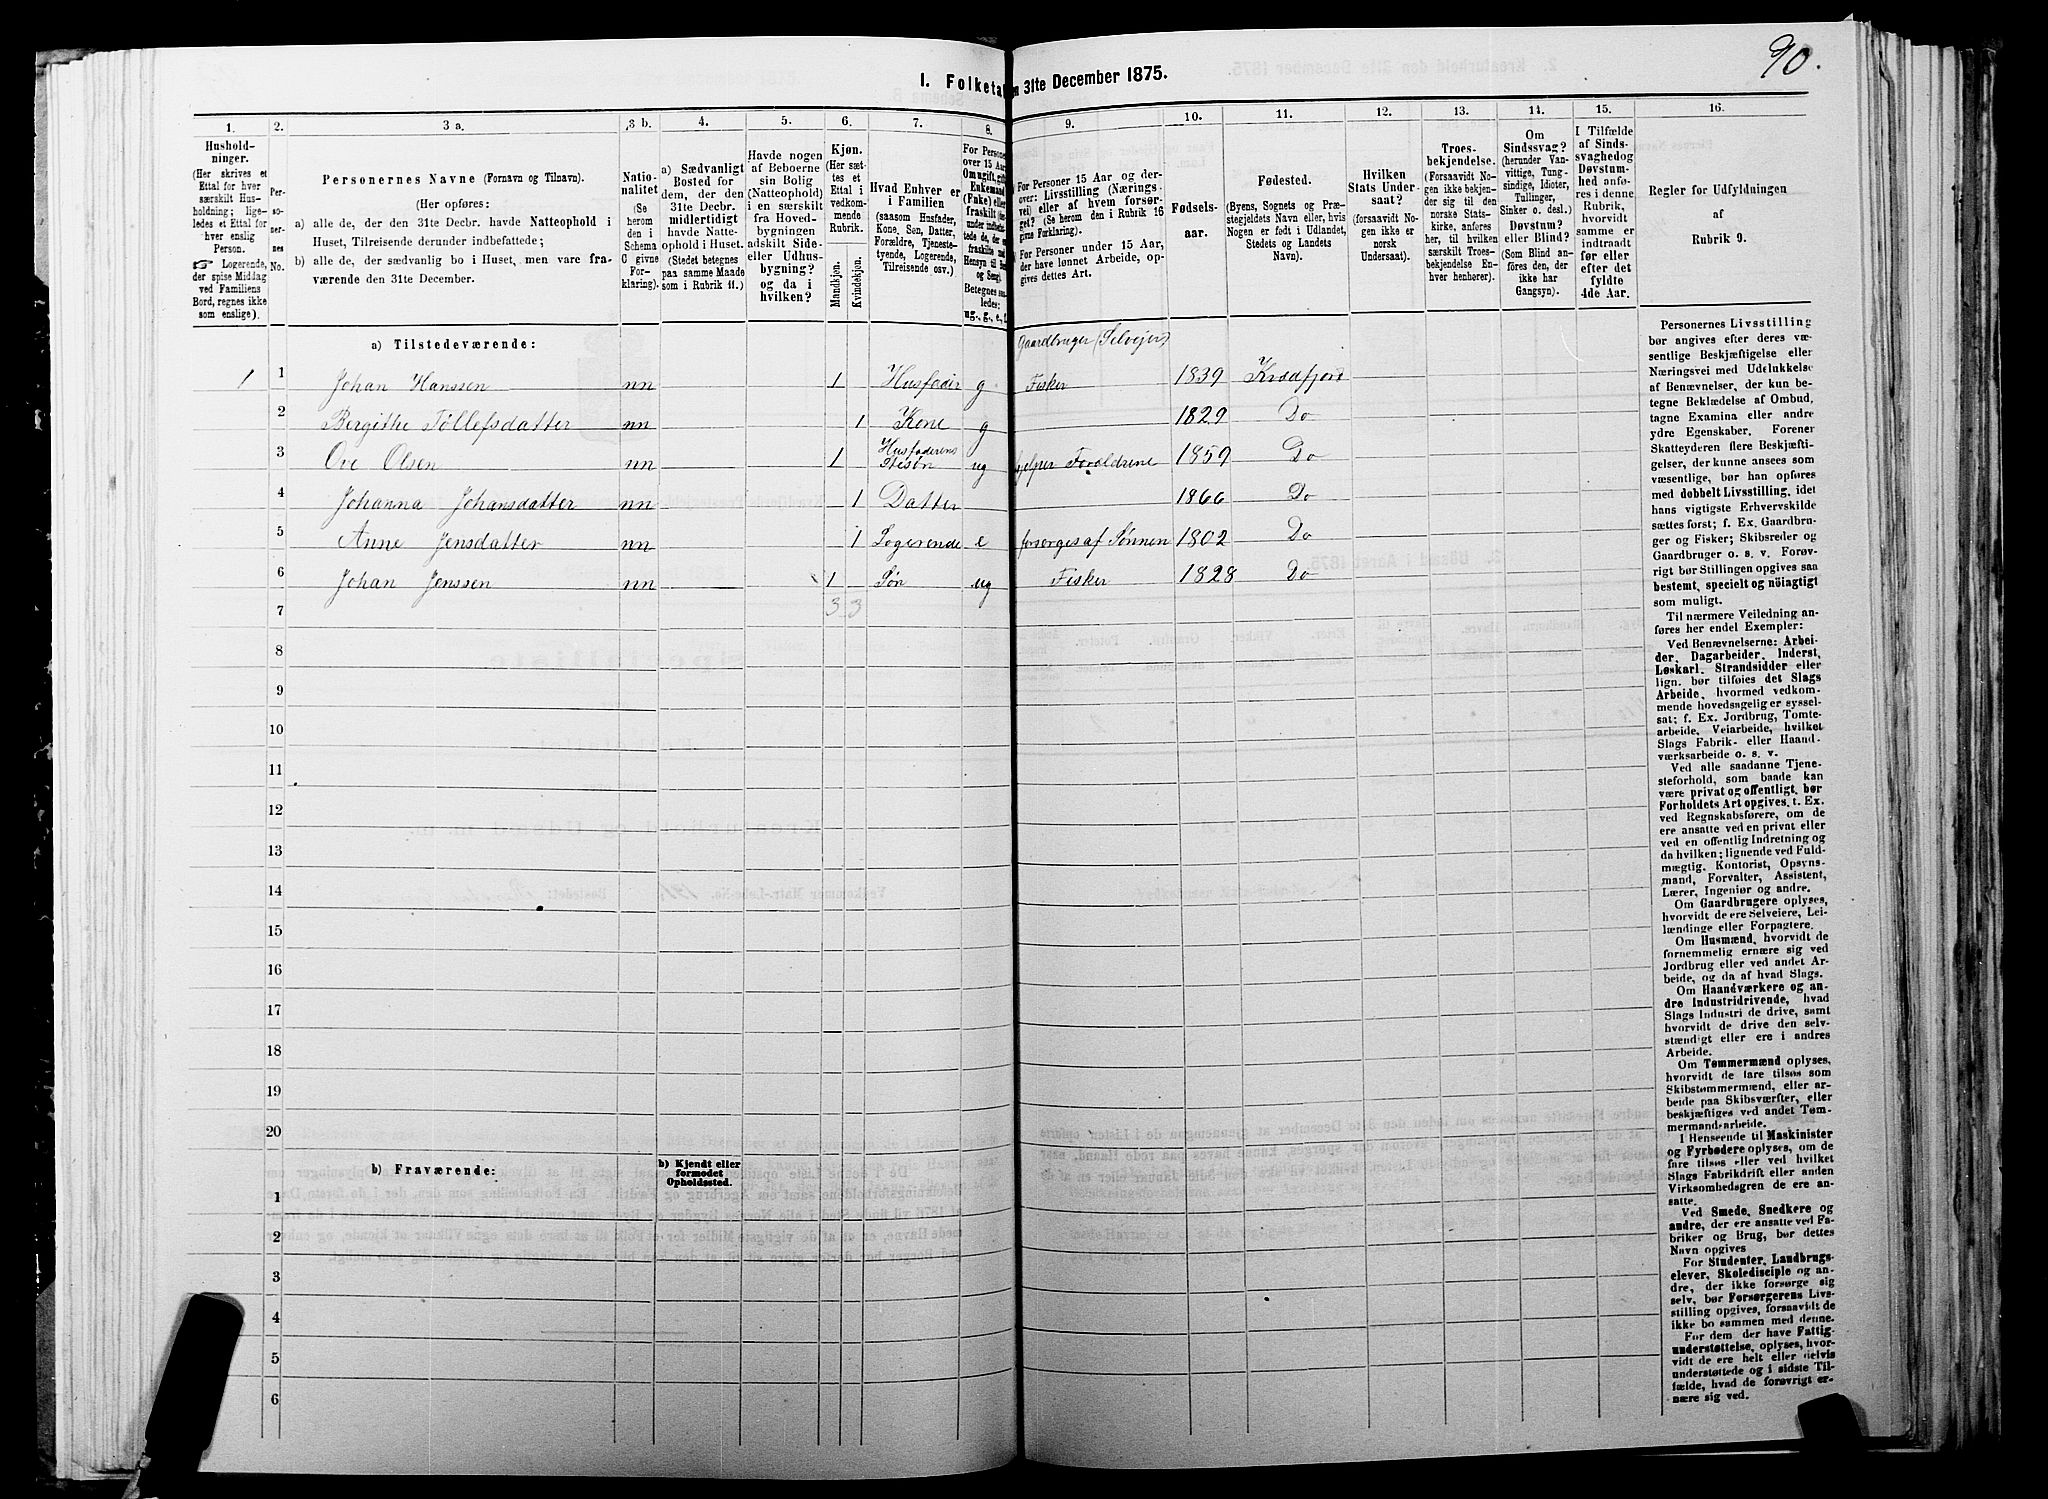 90.
I. Folketal
n 31te December 1875.
1.
2.
3 a.
3 b.
4.
5.
6.
7.
8.
9.
10.
11.
12.
13.
14.
15.
16.
Hushold-
ninger.
(Her skrives et
Ettal for hver
særskilt Hus-
holdning; lige-
ledes et Ettal for
hver enslig
Person.
☞ Logerende,
der spise Middag
ved Familiens
Bord, regnes ikke
som enslige).
Per-
so-
ner-
nes
No.
Personernes Navne (Fornavn og Tilnavn).
(Her opføres:
a) alle de, der den 31te Decbr. havde Natteophold i
Huset, Tilreisende derunder indbefattede;
b) alle de, der sædvanlig bo i Huset, men vare fra-
værende den 31te December.
Natio-
nalitet
(Se
herom
den i
Schema
C givne
For-
klaring).
a) Sædvanligt
Bosted for
dem, der den
31te Decbr.
midlertidigt
havde Natte-
ophold i Huset.
(Stedet betegnes
paa samme Maade
som i Rubrik 11.)
Havde nogen
af Beboerne
sin Bolig
(Natteophold)
i en særskilt
fra Hoved-
bygningen
adskilt Side-
eller Udhus-
bygning?
og da i
hvilken?
Kjøn.
(Her sæt-
tes et
Ettal i
vedkom-
mende
Rubrik.
Mandkjøn.
Kvindekjøn.
Hvad Enhver er
i Familien
(saasom Husfader,
Kone, Søn, Datter,
Forældre, Tjeneste-
tyende, Logerende,
Tilreisende osv.)
For Personer
over 15 Aar:
Om ugift, gift,
Enkemand
(Enke) eller
fraskilt
ug., g., e., f.
For Personer 15 Aar og der-
over: Livsstilling (Nærings-
vei) eller af hvem forsør-
get? (Se herom den i Rubrik 16
givne Forklaring).
For Personer under 15 Aar,
der have lønnet Arbeide, op-
gives dettes Art.
Fødsels-
aar.
Fødested.
(Byens, Sognets og Præ-
stegjeldets Navn eller, hvis
Nogen er født i Udlandet,
Stedets og Landets
Navn).
Hvilken
Stats Under-
saat?
(forsaavidt No-
gen ikke er
norsk
Undersaat).
Troes-
bekjendelse.
(Forsaavidt No-
gen ikke bekjen-
der sig til den
norske Stats-
kirke, anføres
her, til hvilken
særskilt Troes-
bekjendelse En-
hver henhører).
Om
Sindssvag?
(herunder Van-
vittige, Tung-
sindige, Idioter,
Tullinger,
Sinker o. desl.)
Døvstum?
eller Blind?
(Som Blind an-
føres den, der
ikke har
Gangsyn).
I Tilfælde
af Sinds-
svaghed og
Døvstum-
hed anfø-
res i denne
Rubrik,
hvorvidt
samme er
indtraadt
før eller
efter det
fyldte
4de Aar.
Regler for Udfyldningen
af
Rubrik 9.
a) Tilstedeværende:
Gaardbruger (Selvejer)
1 1 Johan Hanssen nn 1 Husfader g Fisker 1839 Kvædfjord
2 Bergithe Tollefsdatter nn 1 Kone g 1829 Do
3 Ove Olsen nn 1 Husfaderens Stesøn ug hjelper Forældrene 1859 Do
4 Johanna Johansdatter nn 1 Datter 1866 Do
5 Anne Jensdatter nn 1 Logerende e forsørges af Sønnen 1802 Do
6 Johan Jenssen nn 1 Søn ug Fisker 1828 Do
7 3 3
8
9
10
11
12
13
14
15
16
17
18
19
20
b) Fraværende:
b) Kjendt eller
formodet
Opholdssted.
1
2
3
4
5
6
Personernes Livsstilling
bør angives efter deres væ-
sentlige Beskjæftigelse eller
Næringsvei med Udelukkelse
af Benævnelser, der kun be-
tegne Beklædelse af Ombud,
tagne Examina eller andre
ydre Egenskaber. Forener
Skatteyderen flere Beskjæfti-
gelser, der kunne ansees som
væsentlige, bør han opføres
med dobbelt Livsstilling, idet
hans vigtigste Erhvervskilde
sættes først; f. Ex. Gaardbru-
ger og Fisker; Skibsreder og
Gaardbruger o. s. v. Forøv-
rigt bør Stillingen opgives saa
bestemt, specielt og nöiagtigt
som muligt.
Til nærmere Veiledning an-
føres her endel Exempler:
Ved Benævnelserne: Arbei-
der, Dagarbeider, Inderst,
Løskarl, Strandsidder eller
lign. bør tilføies det Slags
Arbeide, hvormed vedkom-
mende hovedsagelig er syssel-
sat; f. Ex. Jordbrug, Tomte-
arbeide, Veiarbeide, hvilket
Slags Fabrik- eller Haand-
værksarbeide o. s. v.
Ved alle saadanne Tjene-
steforhold, som baade kan
være privat og offentligt, bør
Forholdets Art opgives, t. Ex.
ved Regnskabsførere, om de
ere ansatte ved en privat eller
ved en offentlig Indretning og
da hvilken; lignende ved Fuld-
mægtig, Kontorist, Opsyns-
mand, Forvalter, Assistent,
Lærer, Ingeniør og andre.
Om Gaardbrugere oplyses,
hvorvidt de ere Selveiere, Lei-
lændinge eller Forpagtere.
Om Husmænd, hvorvidt de
fornemmelig ernære sig ved
Jordbrug eller ved andet Ar-
beide, og da af hvad Slags.
Om Haandværkere og an-
dre Industridrivende, hvad
Slags Industri de drive, samt
hvorvidt de drive den selv-
stændigt eller ere i andres
Arbeide.
Om Tømmermænd oplyses,
hvorvidt de fare tilsøs som
Skibstømmermænd, eller ar-
beide paa Skibsværfter, eller
beskjæftiges ved andet Tøm-
mermandsarbeide.
I Henseende til Maskinister
og Fyrbødere oplyses, om de
fare tilsøs eller ved hvilket
Slags Fabrikdrift eller anden
Virksomhedsgren de ere an-
satte.
Ved Smede, Snedkere og
andre, der ere ansatte ved Fa-
briker og Brug, bør dettes
Navn opgives
For Studenter, Landbrugs-
elever, Skoledisciple og an-
dre, der ikke forsørge sig
selv, bør Forsørgerens Livs-
stilling opgives, forsaavidt de
ikke bo sammen med denne.
For dem der have Fattig-
understøttelse, oplyses, hvor-
vidt de ere helt eller delvis
understøttede og i sidste Til-
fælde, hvad de forøvrigt er-
nære sig ved.